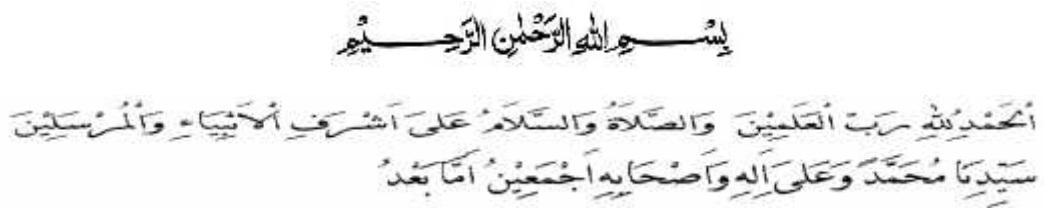 بِسْــــمِ اللهِ الرَّحْمٰنِ الرَّحِــــيْمِ
اَلْحَمْدُ لِلّٰهِ رَبِّ الْعَلَمِيْنَ وَالصَّلَاةُ وَالسَّلَامُ عَلىَ اَشْرَفِ اْلاَنْبِيَاءِ وَالْمُرْسَلِيْنَ
سَيِّدِنَا مُحَمَّدٍ وَعَلىَ اَلِهِ وَاَصْحَابِهِ اَجْمَعِيْنُ اَمَّا بَعْدُ